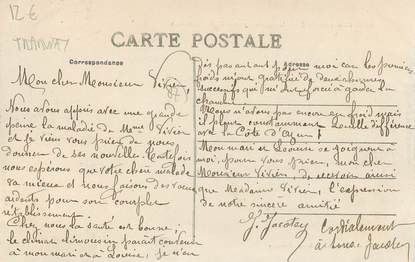 12 €
TRAMWAY
CARTE POSTALE
Correspondance
Adresse
Mon cher Monsieur Vivien,
Nous avons appris avec une grande
peine la maladie de Mme Vivien
et je viens vous prier de nous
donner de ses nouvelles. Toutefois
nous espérons que votre chère malade
va mieux et nous faisons des vœux
ardents pour son complet
rétablissement.
Chez nous la santé est bonne;
le climat limousin paraît convenir
à mon mari et à Léonie, je n'en
dis pas autant pour moi car les premiers
froids m'ont gratifiée de deux
qui m'ont forcée à garder la
chambre.
Nous n'avons pas encore eu froid mais
il pleut constamment. Quelle différence
avec la Côte d'Azur!
Mon mari et Léonie se joignent à
moi, pour vous prier, mon cher
Monsieur Vivien, de recevoir ainsi
que Madame Vivien, l'expression
de notre sincère amitié
J. Jacotey
Cordialement
à tous
Jacotey